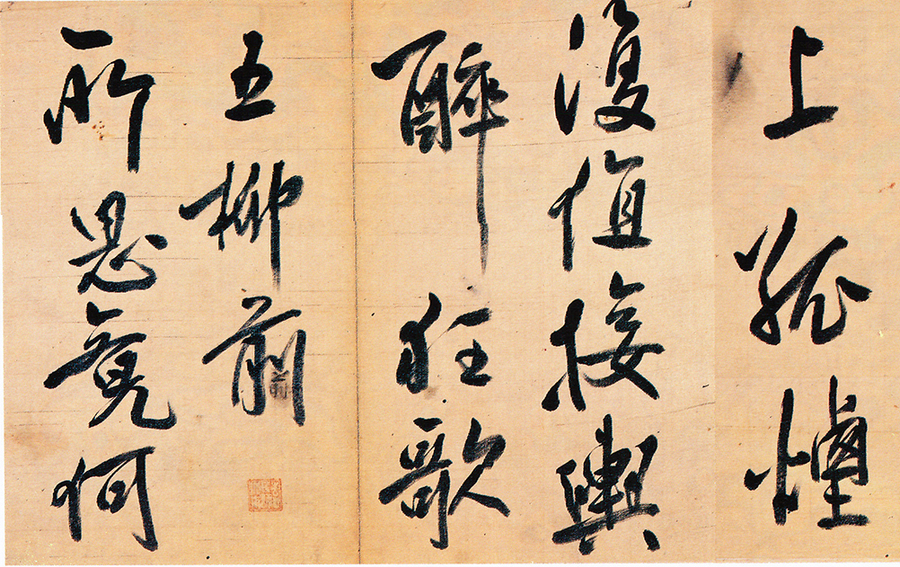 上孤煙
復值接輿
醉狂歌
五柳前
所思竟何